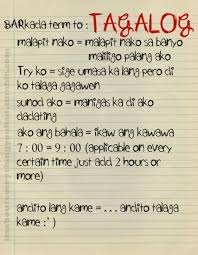 BARkada term to : TAGALOG
malapit nako = malapit nako sa banyo
maliligo palang ako
Try ko = sige umasa ka lang pero di
ko talaga gagawen
sunod ako = manigas ka di ako
dadating
ako ang bahala = ikaw ang kawawa
7 : 00 = 9 : 00 (applicable on every
certain time just add 2 hours or
more)
andito lang kame = ... andito talaga
kame :' )